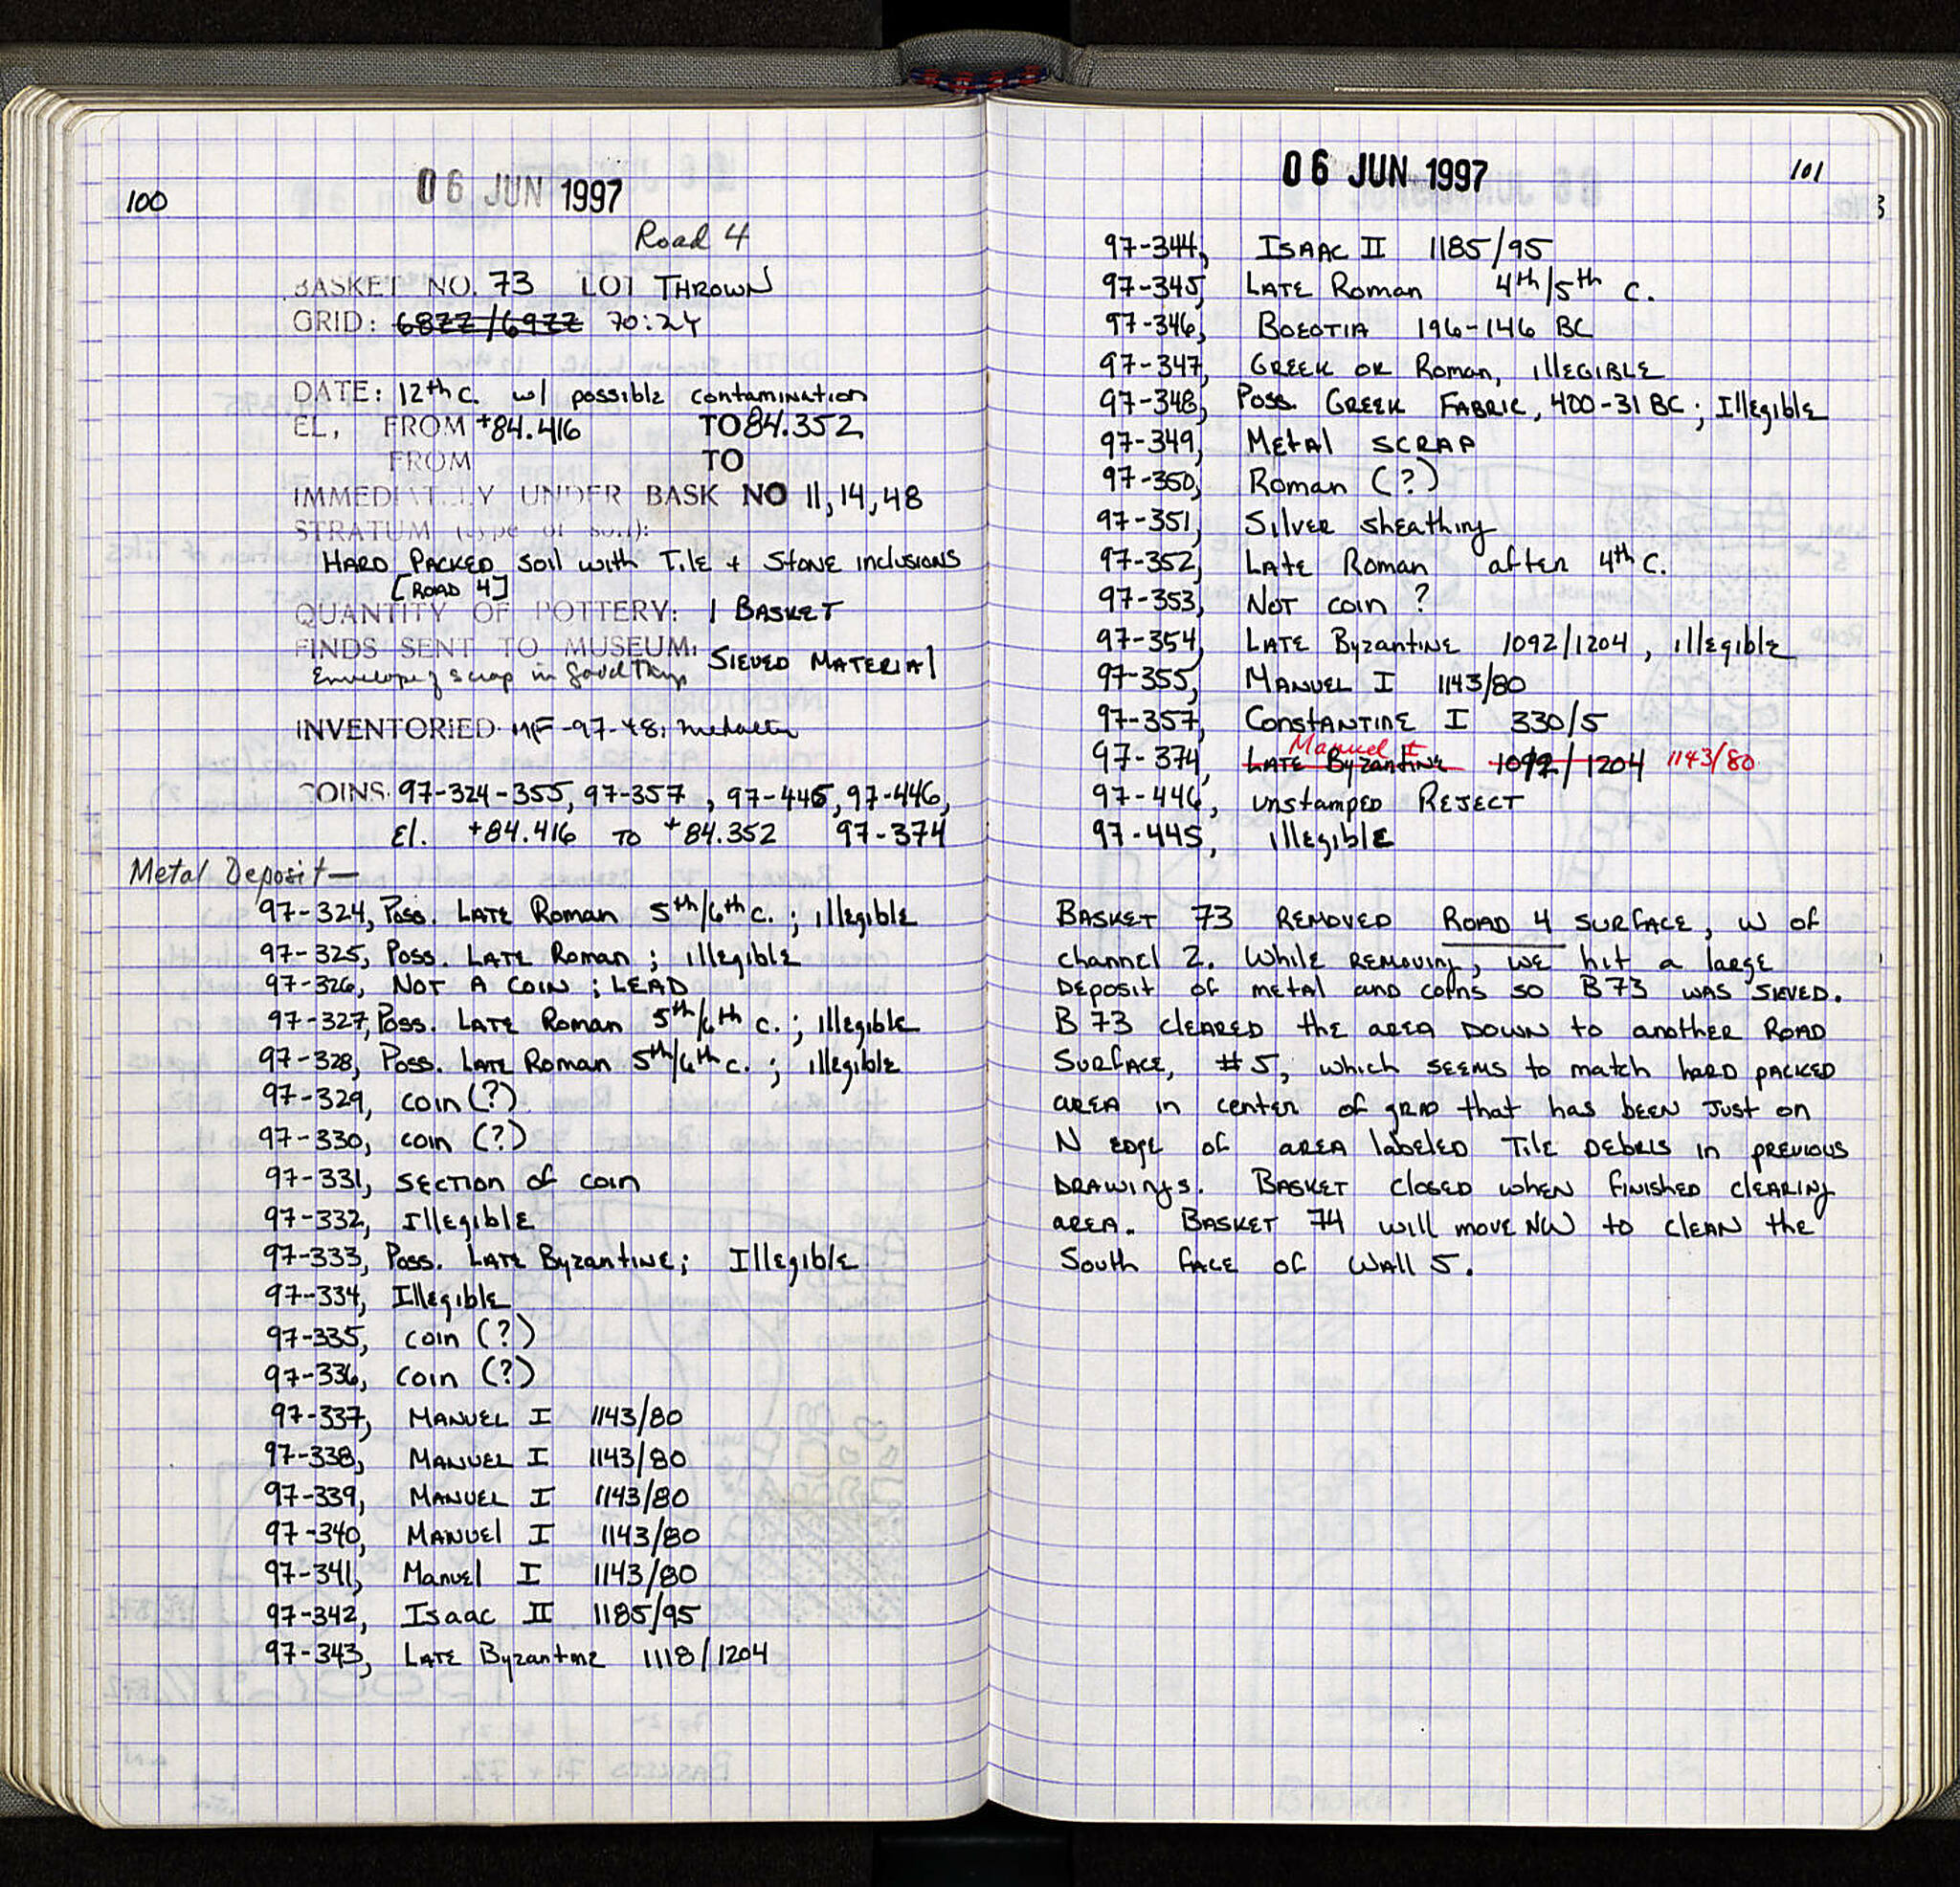 100
06 JUN 1997
Road 4
BASKET NO. 73 LOT THROWN
GRID: 68ZZ/69ZZ 70:ZY
DATE: 12th c. w/ possible contamination
EL, FROM +84.416 TO 84.352
FROM TO
IMMEDIATELY UNDER BASK NO 11, 14, 48
STRATUM (type of soil):
HARD PACKED Soil with Tile + Stone inclusions
[ROAD 4]
QUANTITY OF POTTERY: 1 BASKET
FINDS SENT TO MUSEUM: SIEVED MATERIAL
Envelope of scrap in
INVENTORIED MF-97-48:
COINS 97-324-355, 97-357, 97-445, 97-446,
El. +84.416 TO +84.352 97-374
Metal Deposit—
97-324, Poss. LATE Roman 5th/6th c.; illegible
97-325, Poss. LATE Roman; illegible
97-326, NOT A COIN; LEAD
97-327, Poss. LATE Roman 5th/6th c.; illegible
97-328, Poss. LATE Roman 5th/6th c.; illegible
97-329, coin (?)
97-330, coin (?)
97-331, SECTION of coin
97-332, Illegible
97-333, Poss. LATE Byzantine; Illegible
97-334, Illegible
97-335, coin (?)
97-336, coin (?)
97-337, MANUEL I 1143/80
97-338, MANUEL I 1143/80
97-339, MANUEL I 1143/80
97-340, MANUEL I 1143/80
97-341, Manuel I 1143/80
97-342, Isaac II 1185/95
97-343, LATE Byzantine 1118/1204
06 JUN 1997
101
97-344, ISAAC II 1185/95
97-345, LATE Roman 4th/5th c.
97-346, BOEOTIA 196-146 BC
97-347, GREEK OR Roman, illEGIBLE
97-348, Poss. GREEK FABRIC, 400-31 BC; Illegible
97-349, Metal SCRAP
97-350, Roman (?)
97-351, Silver sheathing
97-352, Late Roman after 4th c.
97-353, NOT coin ?
97-354, LATE Byzantine 1092/1204, illegible
97-355, MANUEL I 1143/80
97-357, CONSTANTINE I 330/5
Manuel I
97-374, LATE Byzantine 1092/1204 1143/80
97-446, unstamped REJECT
97-445, illegible
BASKET 73 REMOVED ROAD 4 SURFACE, W of
channel 2. While REMOVING, we hit a large
DEPOSIT of metal and coins so B73 was SIEVED.
B 73 CLEARED the area DOWN to another ROAD
SURFACE, #5, which SEEMS to match hard packed
area in center of grid that has been just on
N edge of area labeled Tile DEBRIS in previous
DRAWINGS. BASKET closed when finished clearing
area. BASKET 74 will move NW to clean the
South face of Wall 5.